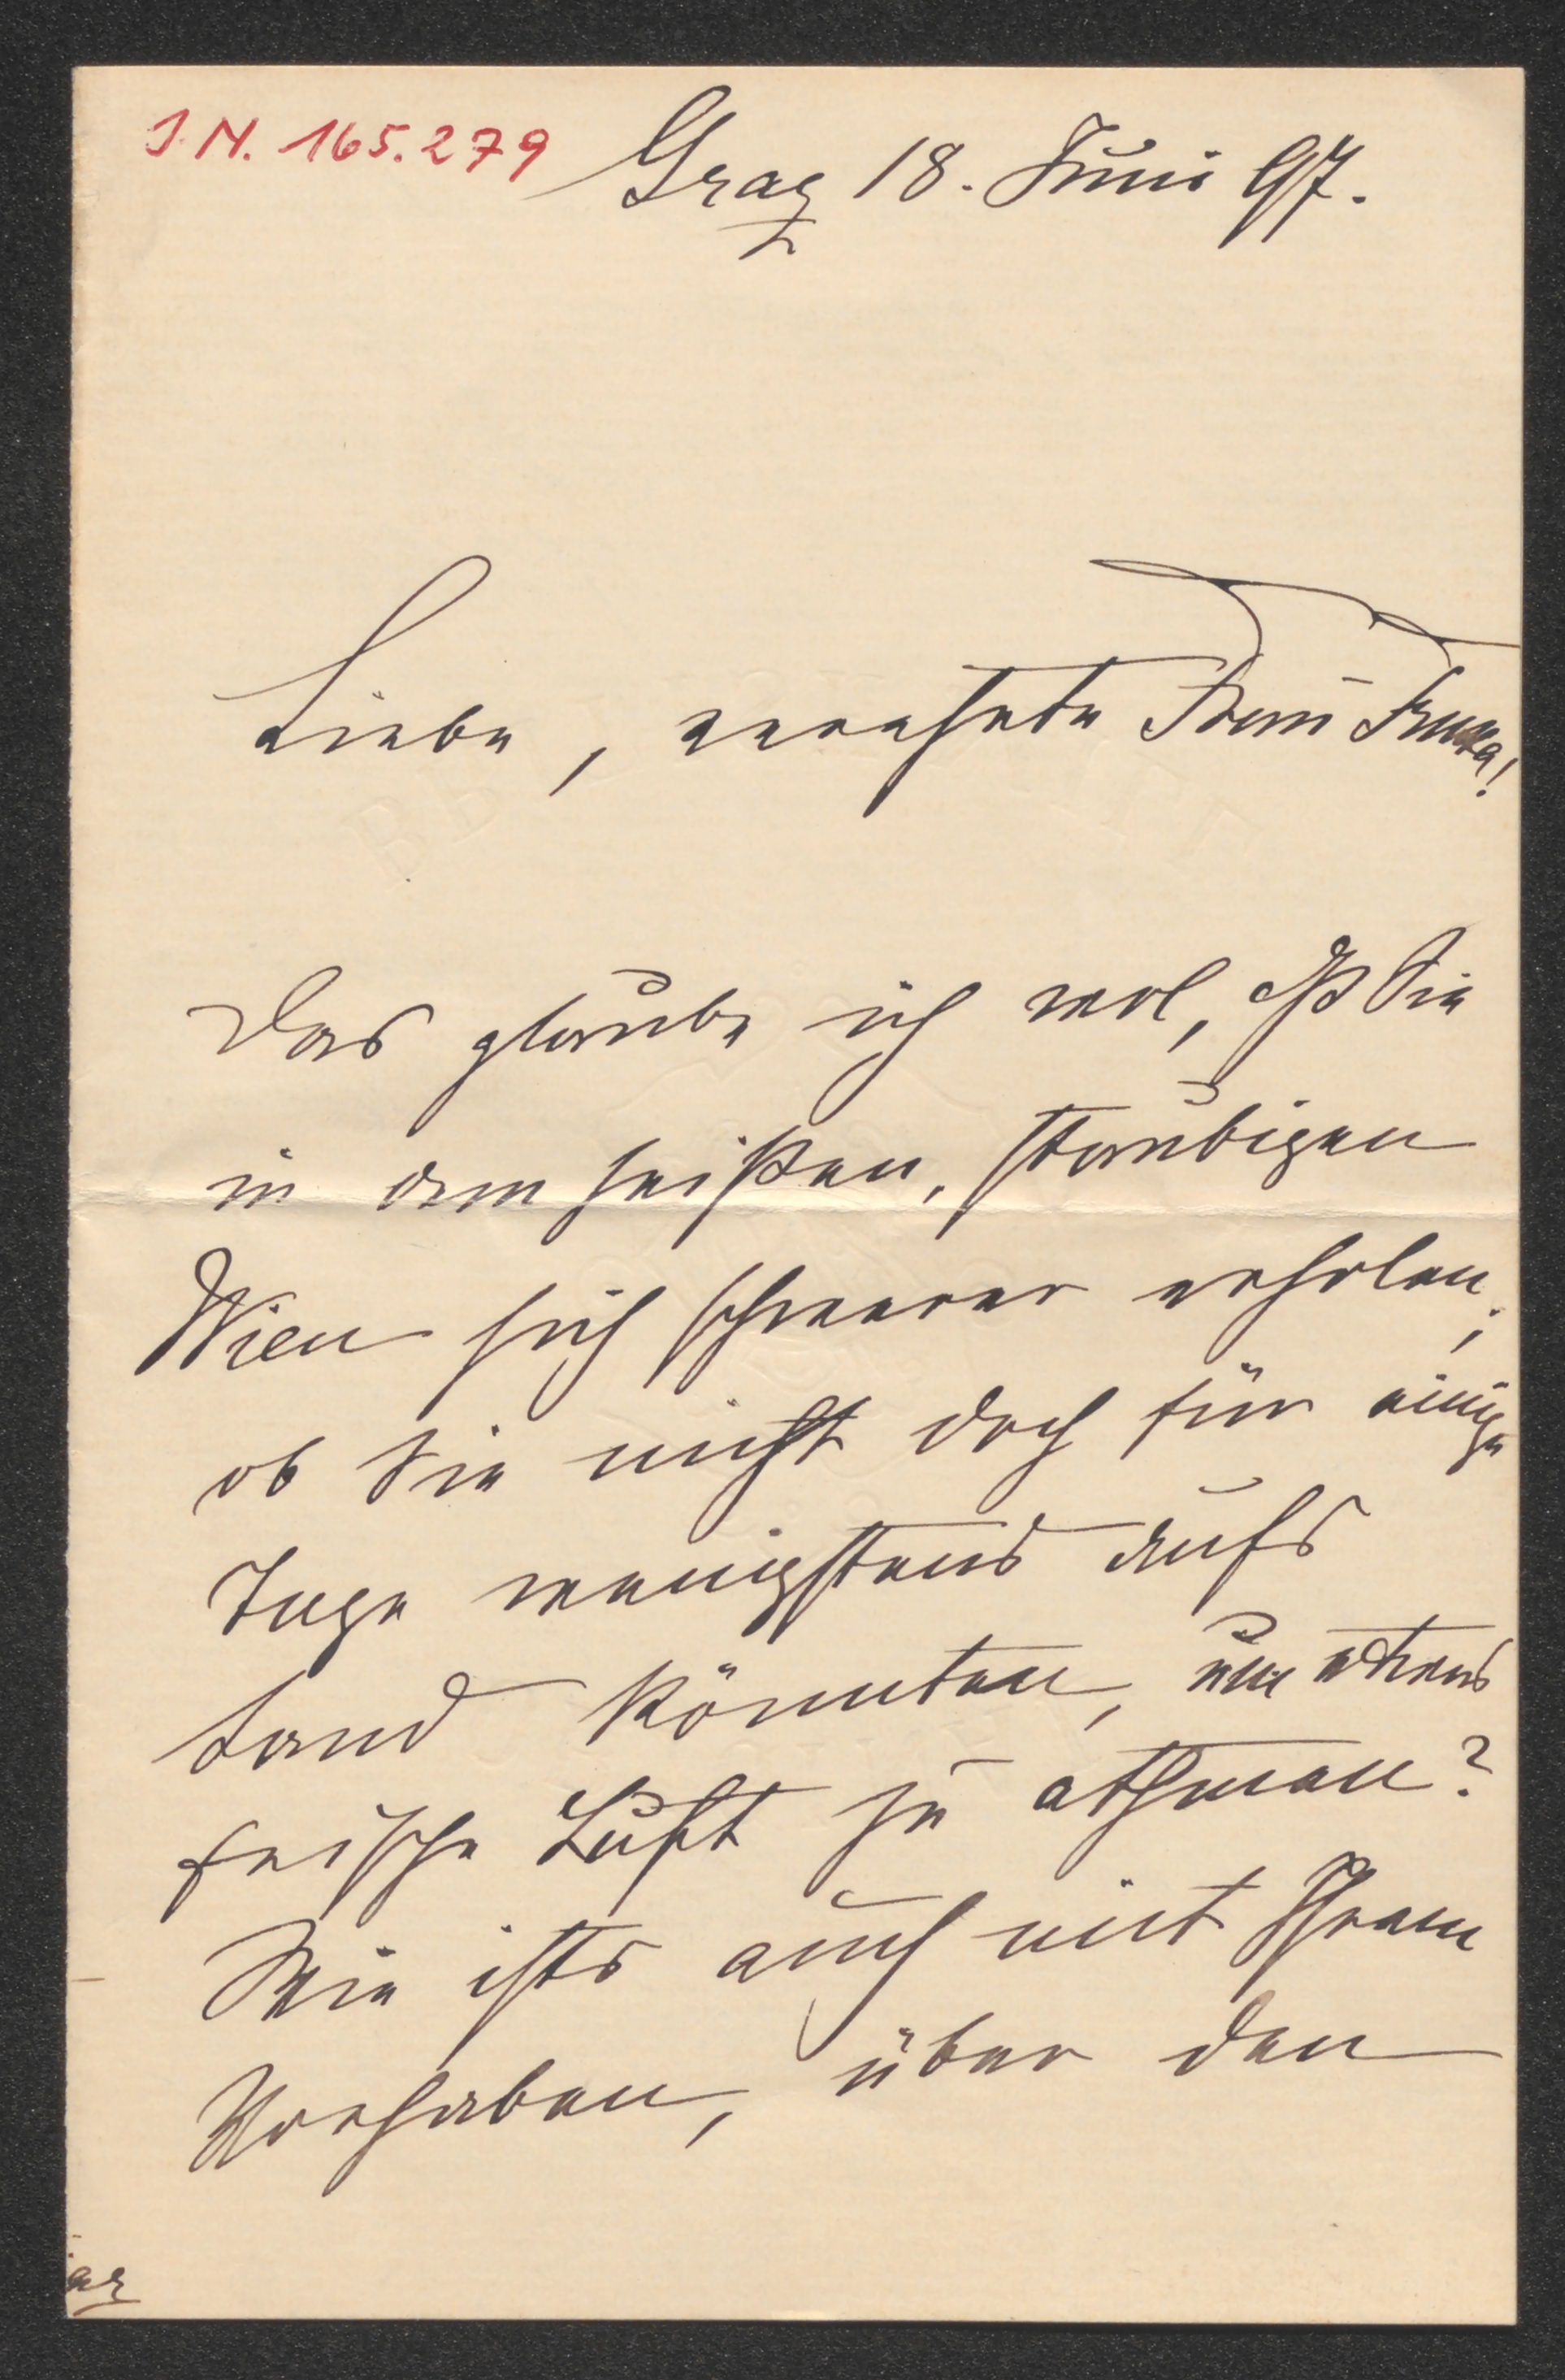 J.N. 165.279
Graz 18. Juni 97.
Liebe, verehrte Frau
Das glaube ich wol, dß Sie
in dem heißen, staubigen
Wien sich schwerer erholen;
ob Sie nicht doch für einige
Tage wenigstens aufs
Land könnten, um etwas
frische Luft zu athmen?
Wie ists auch mit Ihrem
Vorhaben, über den